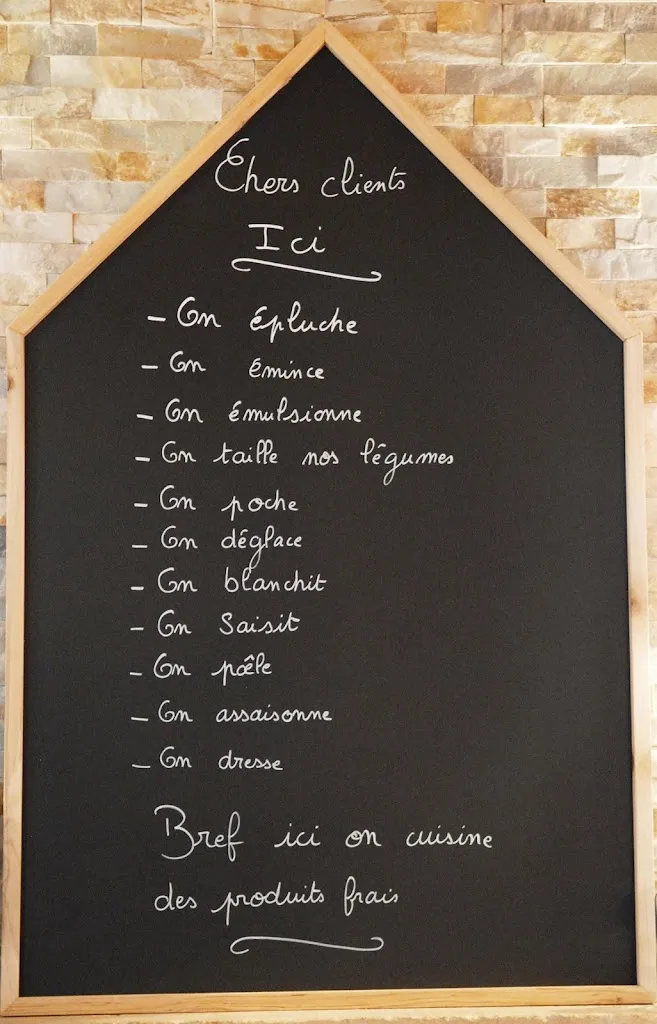 Chers clients
Ici
- On épluche
- On émince
- On émulsionne
- On taille nos légumes
- On poche
- On déglace
- On blanchit
- On Saisit
- On poêle
- On assaisonne
- On dresse
Bref ici on cuisine
des produits frais